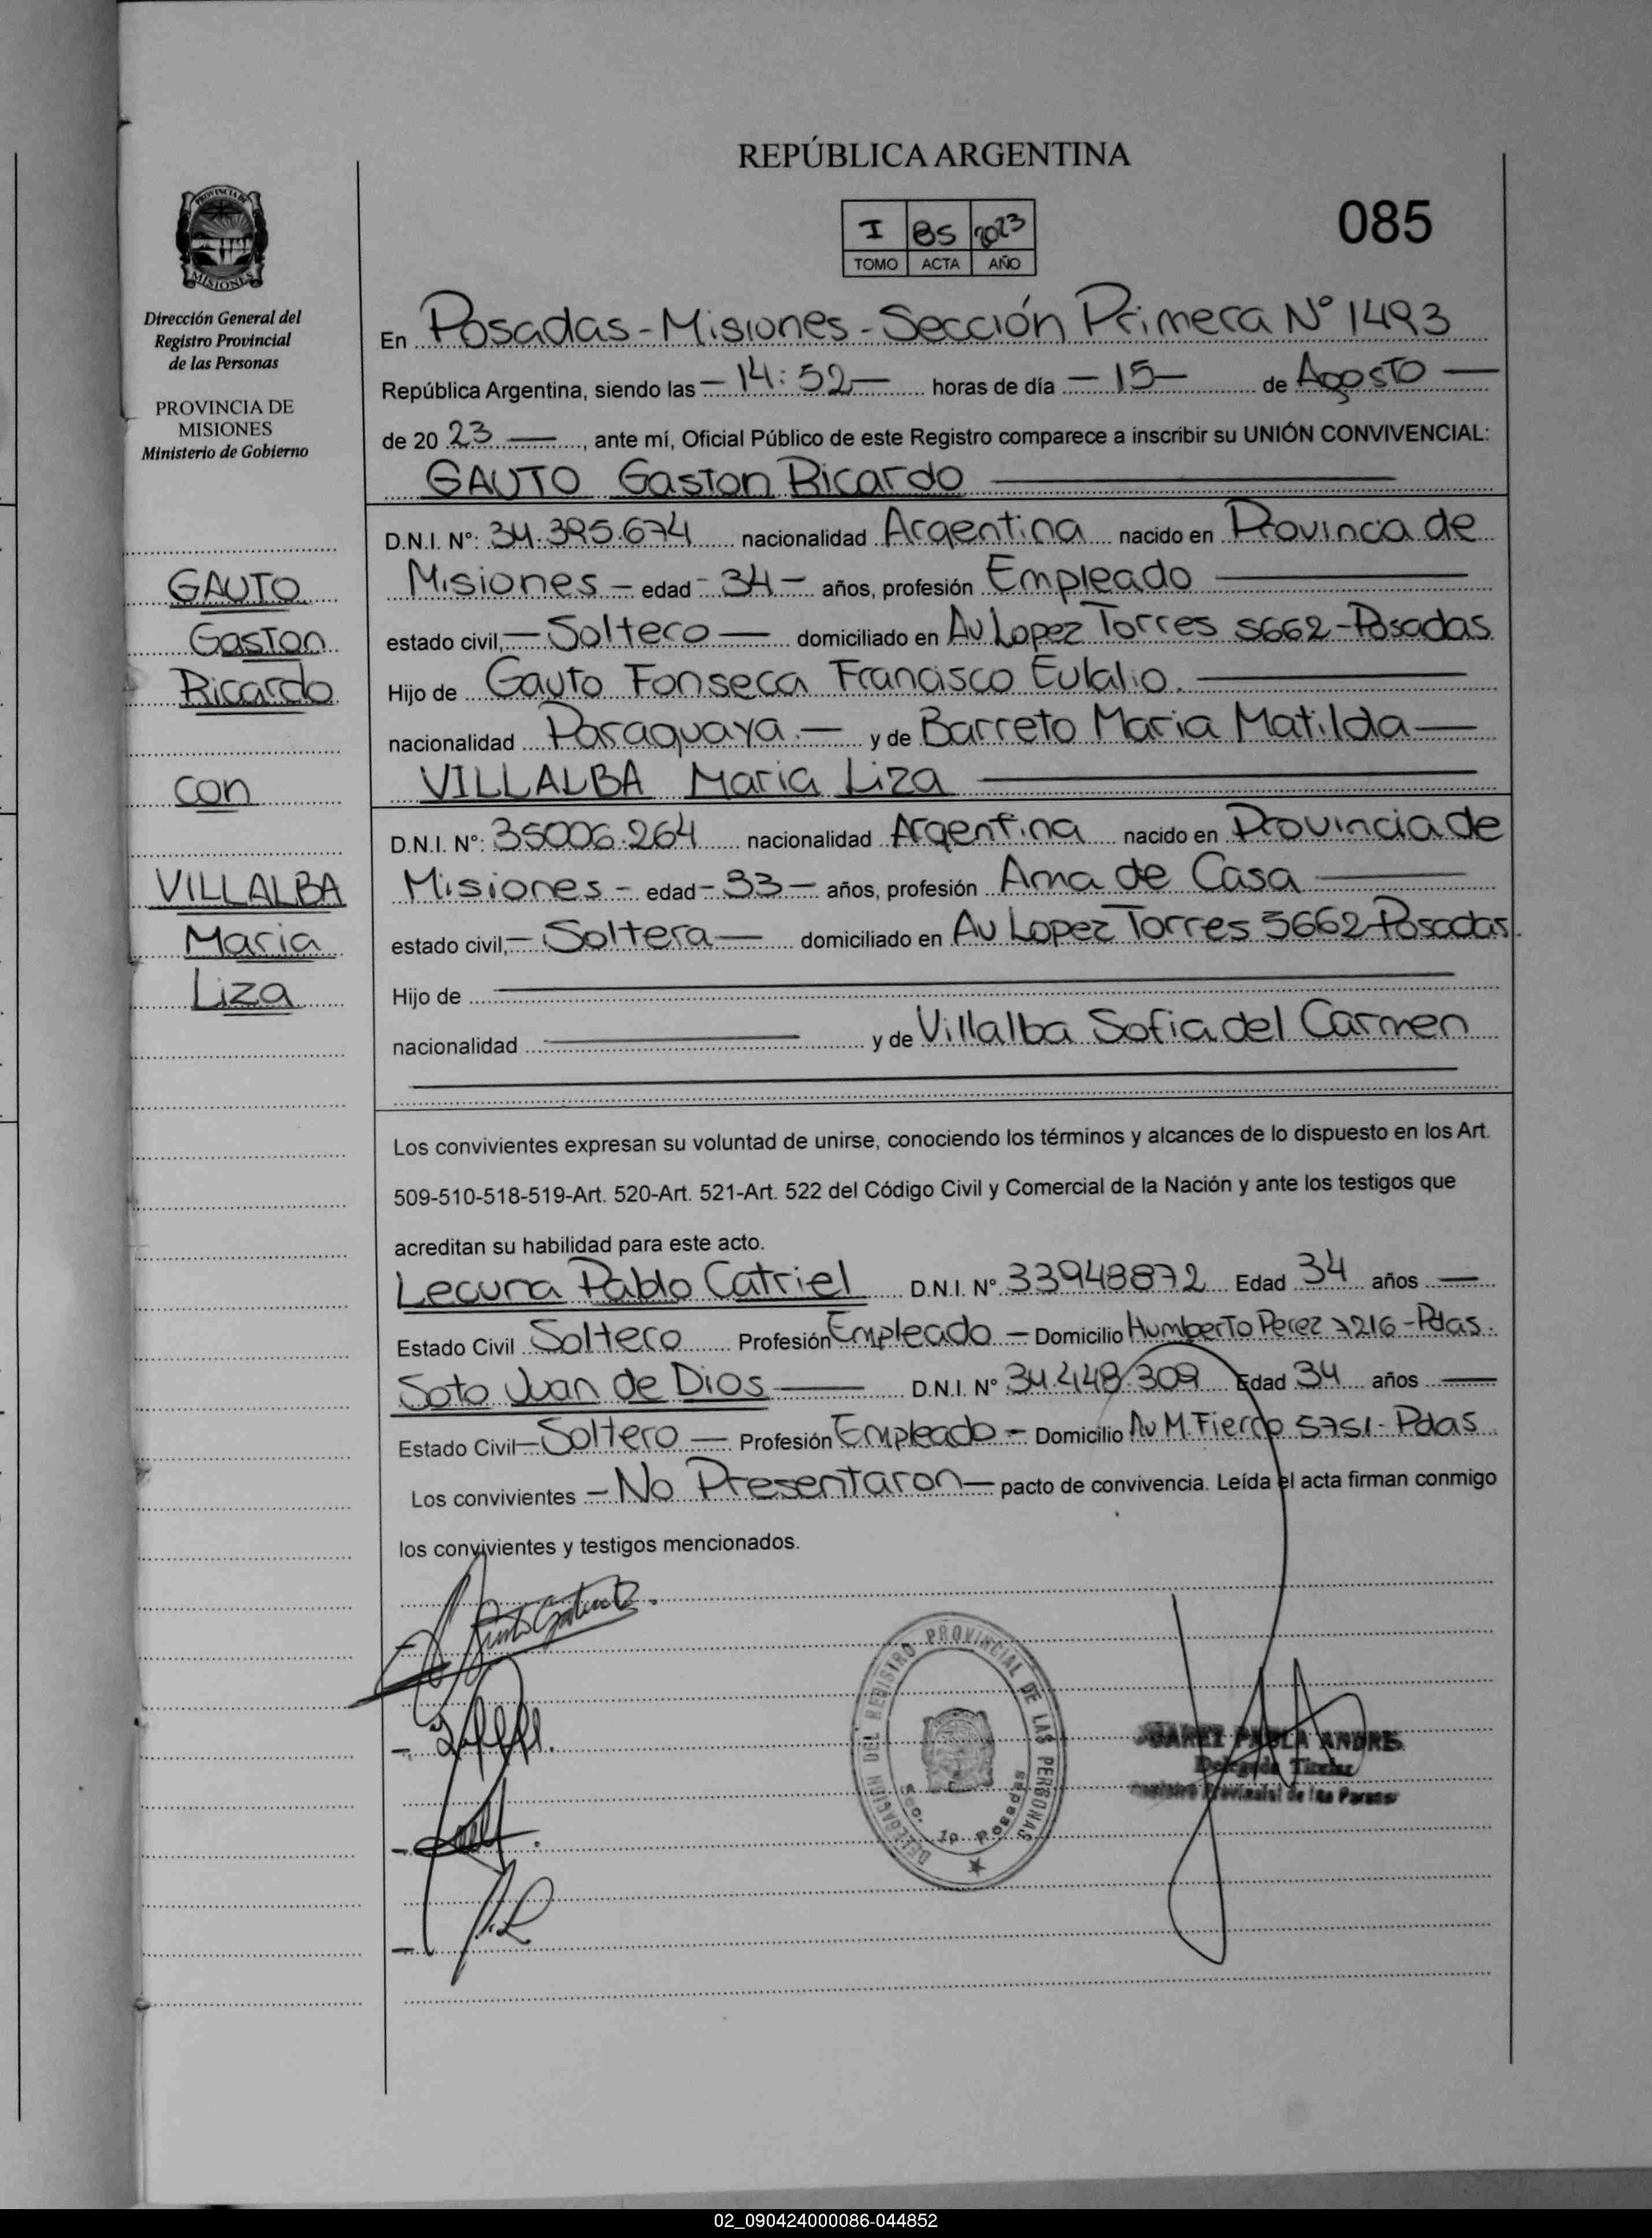 REPÚBLICA ARGENTINA
085
I 85 2023
TOMO ACTA AÑO
PROVINCIA DE
MISIONES
Dirección General del
Registro Provincial
de las Personas
PROVINCIA DE
MISIONES
Ministerio de Gobierno
GAUTO
Gaston
Ricardo
con
VILLALBA
Maria
Liza
En Posadas - Misiones - Sección Primera N° 1493
República Argentina, siendo las - 14:52 - horas de día - 15 - de Agosto -
de 20 23 -, ante mí, Oficial Público de este Registro comparece a inscribir su UNIÓN CONVIVENCIAL:
GAUTO Gaston Ricardo
D.N.I. N°: 34.395.674 nacionalidad Argentina nacido en Provinca de
Misiones - edad - 34 - años, profesión Empleado
estado civil, - Soltero - domiciliado en Av Lopez Torres 5662 - Posadas
Hijo de Gauto Fonseca Francisco Eulalio.
nacionalidad Paraguaya. - y de Barreto Maria Matilda -
VILLALBA Maria Liza
D.N.I. N°: 35006.264 nacionalidad Argentina nacido en Provincia de
Misiones - edad - 33 - años, profesión Ama de Casa
estado civil, - Soltera - domiciliado en Av Lopez Torres 5662 - Posadas.
Hijo de
nacionalidad y de Villalba Sofia del Carmen
Los convivientes expresan su voluntad de unirse, conociendo los términos y alcances de lo dispuesto en los Art.
509-510-518-519-Art. 520-Art. 521-Art. 522 del Código Civil y Comercial de la Nación y ante los testigos que
acreditan su habilidad para este acto.
Lecuna Pablo Catriel D.N.I. N° 33948872 Edad 34 años -
Estado Civil Soltero Profesión Empleado - Domicilio Humberto Perez 7216 - Pdas.
Soto Juan de Dios - D.N.I. N° 34.448.309 Edad 34 años -
Estado Civil - Soltero - Profesión Empleado - Domicilio Av M. Fierro 5751 - Pdas
Los convivientes - No Presentaron - pacto de convivencia. Leída el acta firman conmigo
los convivientes y testigos mencionados.
DELEGACION DEL REGISTRO PROVINCIAL DE LAS PERSONAS
Sec. 1a Posadas
PAOLA ANDRE
Delegada Titular
Registro Provincial de las Personas
02_090424000086-044852